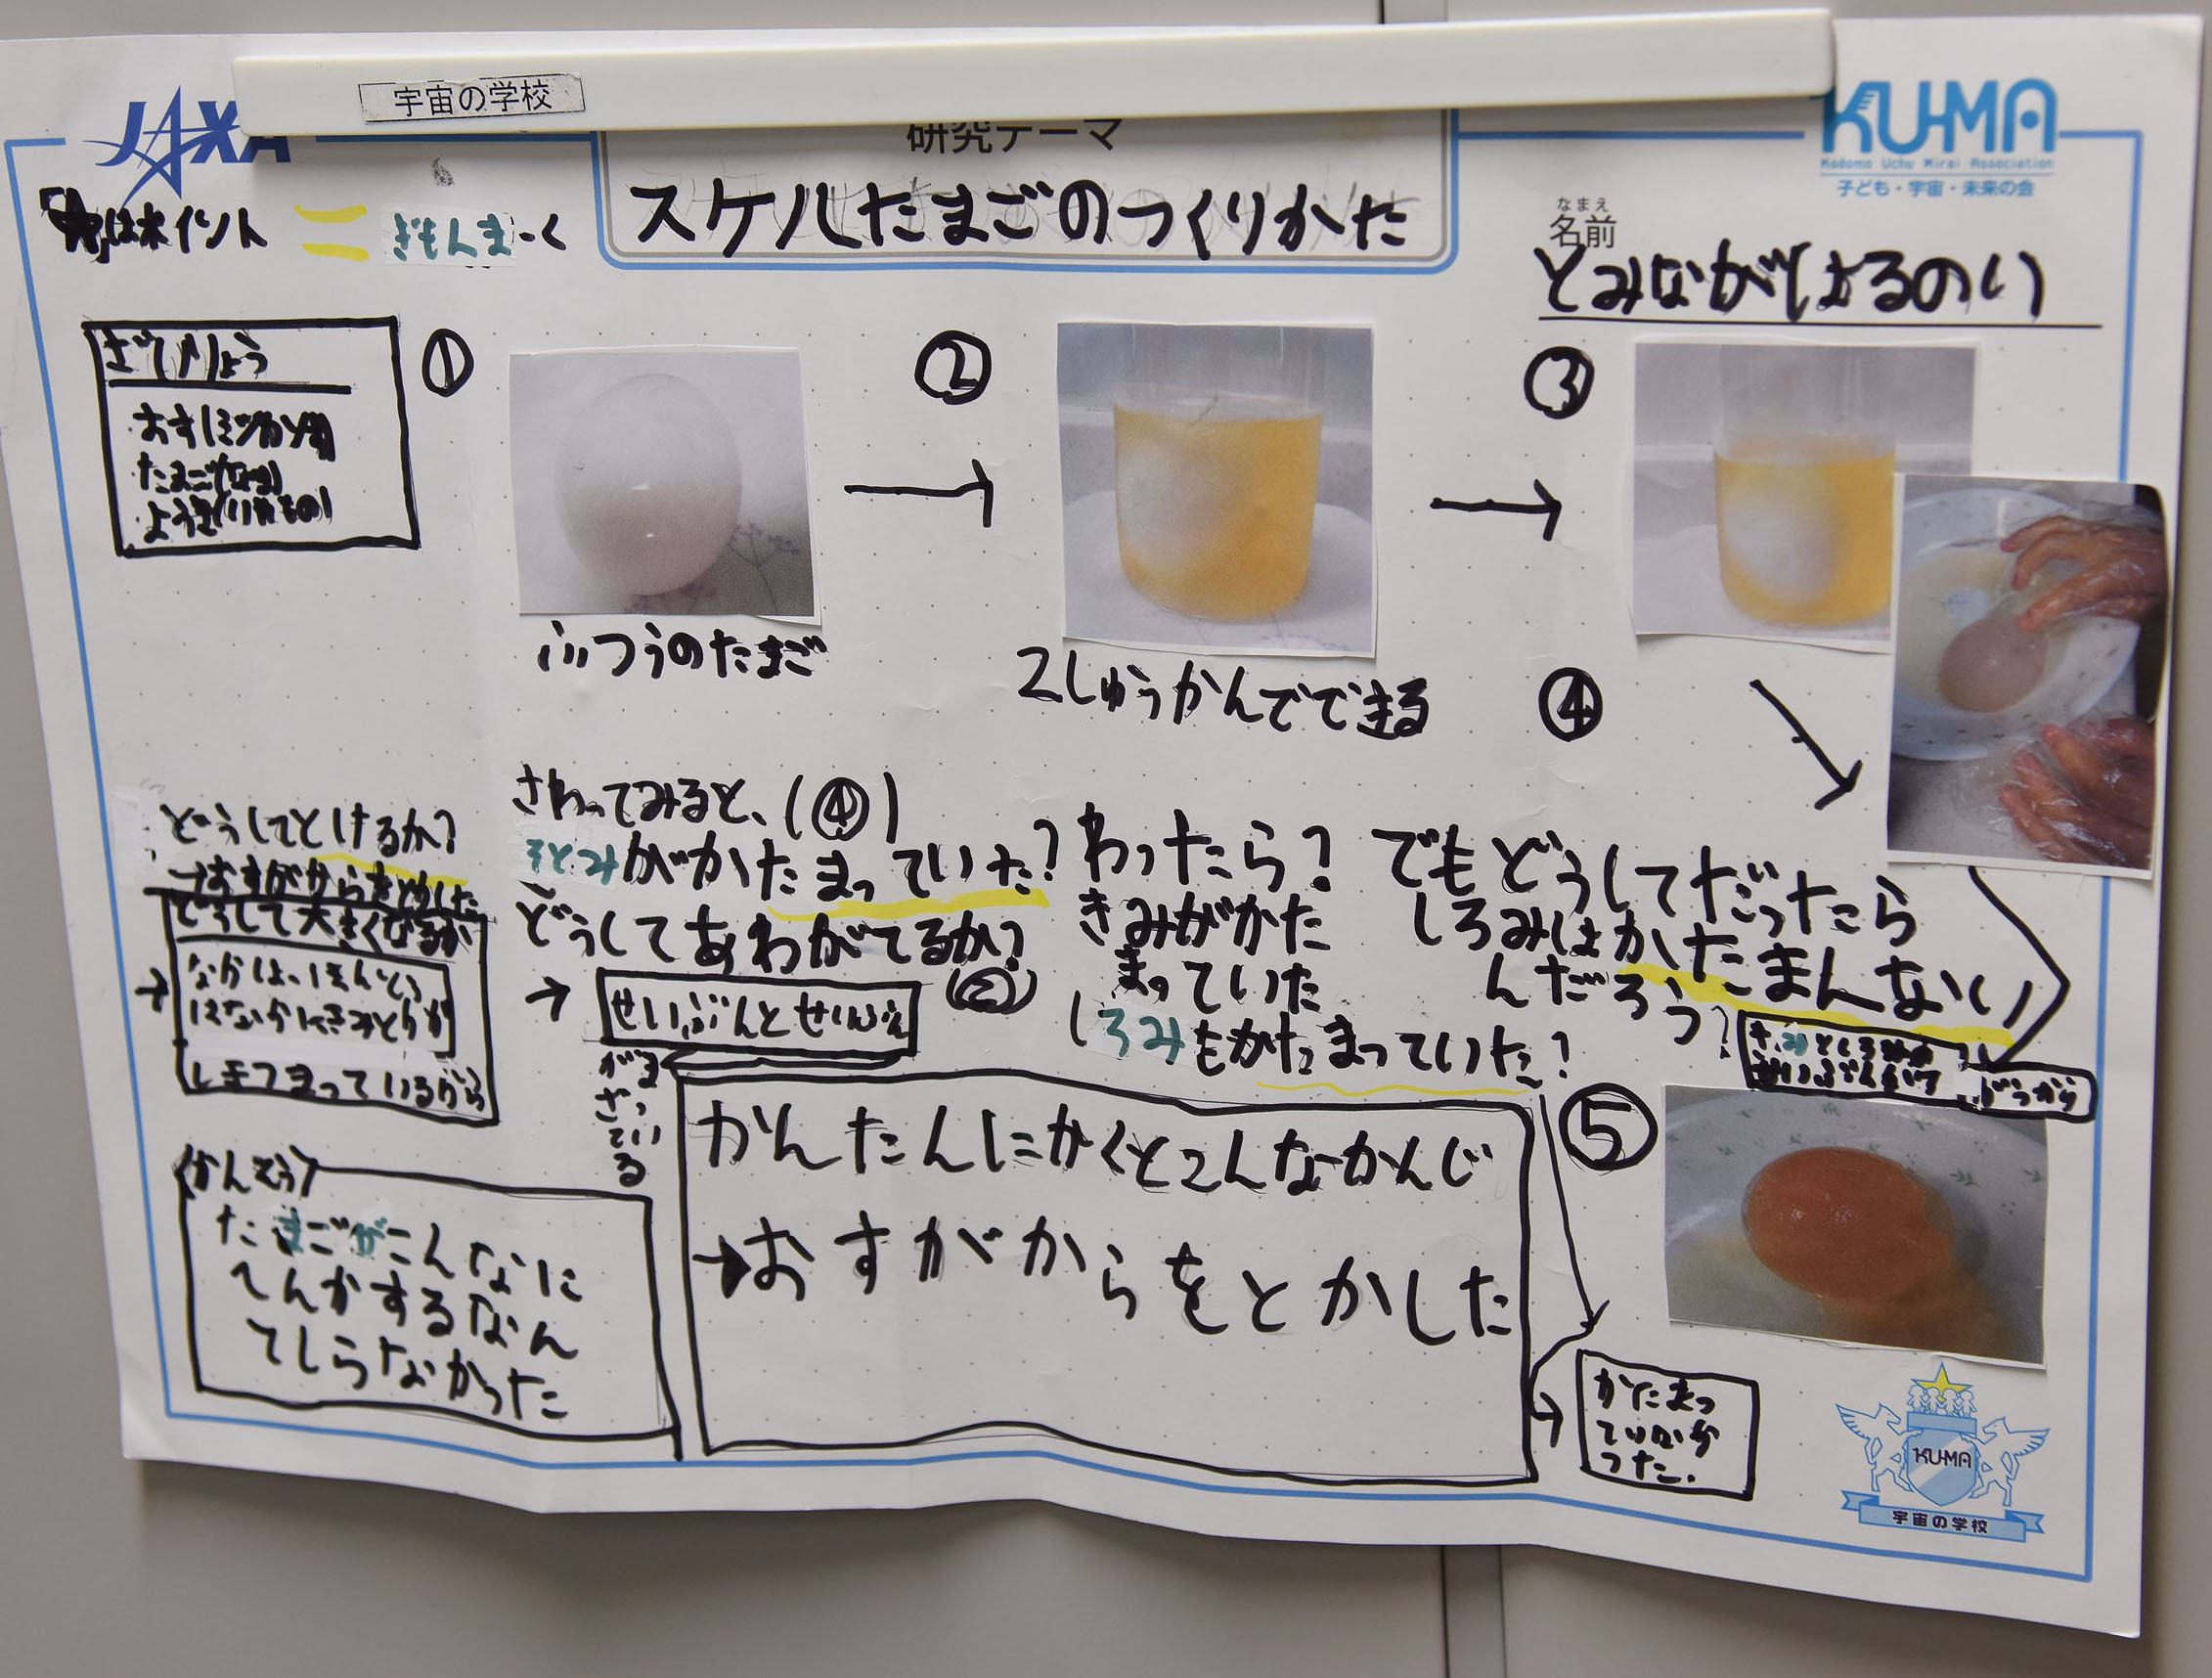 宇宙の学校
JAXA
研究テーマ
KU-MA
Kodomo Uchu Mirai Association
子ども・宇宙・未来の会
はポイント
ぎもんまーく
スケルたまごのつくりかた
なまえ
名前
とみながはるのり
ざいりょう
たまご
①
②
③
ふつうのたまご
2しゅうかんでできる
④
どうしてとけるか?
→おすがからをとかした
どうして大きくなるか
→
しきつまっているから
さわってみると、(④)
そとみがかたまっていた?
どうしてあわがでるか?
→
せいぶんとせいぶん
がま
ざっ
てい
る
わったら?
きみがかた
まっていた
しろみもかたまっていた?
でもどうしてだったら
しろみはかたまんない
んだろう?
きみとしろみの
せいぶんが
⑤
かんたんにかくとこんなかんじ
→おすがからをとかした
かんそう
たまごがこんなに
へんかするなん
てしらなかった
→
かたまっ
ていなか
った.
KU-MA
宇宙の学校